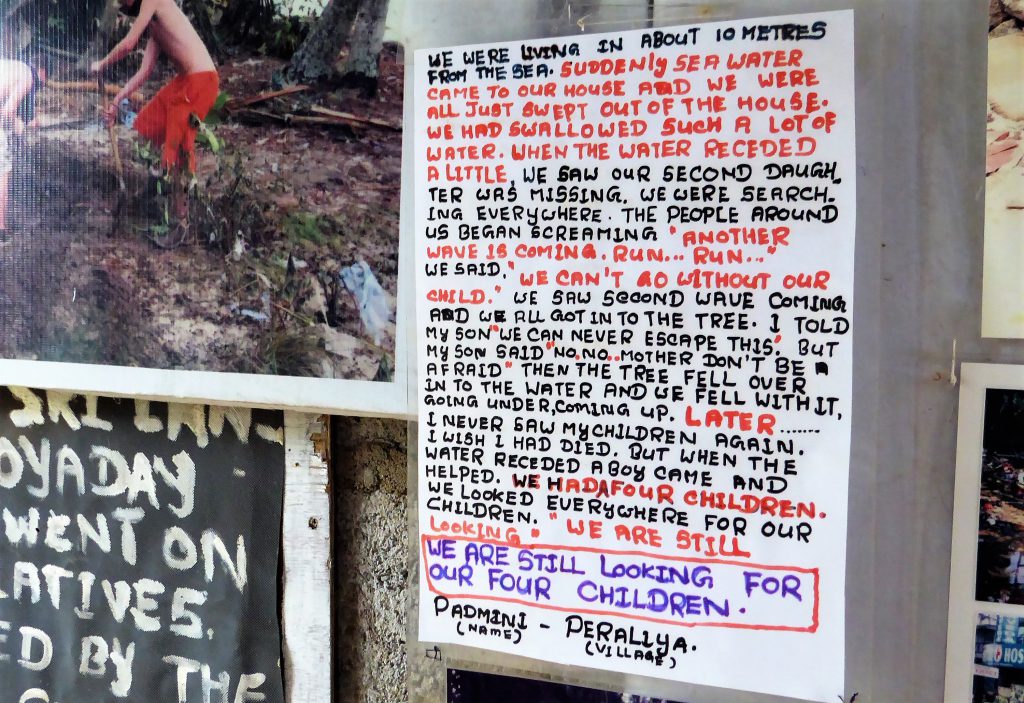 WE WERE LIVING IN ABOUT 10 METRES
FROM THE SEA. SUDDENLY SEA WATER
CAME TO OUR HOUSE AND WE WERE
ALL JUST SWEPT OUT OF THE HOUSE.
WE HAD SWALLOWED SUCH A LOT OF
WATER. WHEN THE WATER RECEDED
A LITTLE, WE SAW OUR SECOND DAUGH
TER WAS MISSING. WE WERE SEARCH-
ING EVERYWHERE. THE PEOPLE AROUND
US BEGAN SCREAMING "ANOTHER
WAVE IS COMING. RUN... RUN..."
WE SAID, "WE CAN'T GO WITHOUT OUR
CHILD." WE SAW SECOND WAVE COMING
AND WE ALL GOT IN TO THE TREE. I TOLD
MY SON "WE CAN NEVER ESCAPE THIS". BUT
MY SON SAID "NO, NO.. MOTHER DON'T BE
AFRAID" THEN THE TREE FELL OVER
IN TO THE WATER AND WE FELL WITH IT,
GOING UNDER, COMING UP. LATER.......
I NEVER SAW MY CHILDREN AGAIN.
I WISH I HAD DIED. BUT WHEN THE
WATER RECEDED A BOY CAME AND
HELPED. WE HAD FOUR CHILDREN.
WE LOOKED EVERYWHERE FOR OUR
CHILDREN. "WE ARE STILL
LOOKING."
WE ARE STILL LOOKING FOR
OUR FOUR CHILDREN.
PADMINI - PERALIYA.
(NAME) (VILLAGE)
SRI LAN
OYADAY
WENT ON
LATIVES.
ED BY THE
HOS